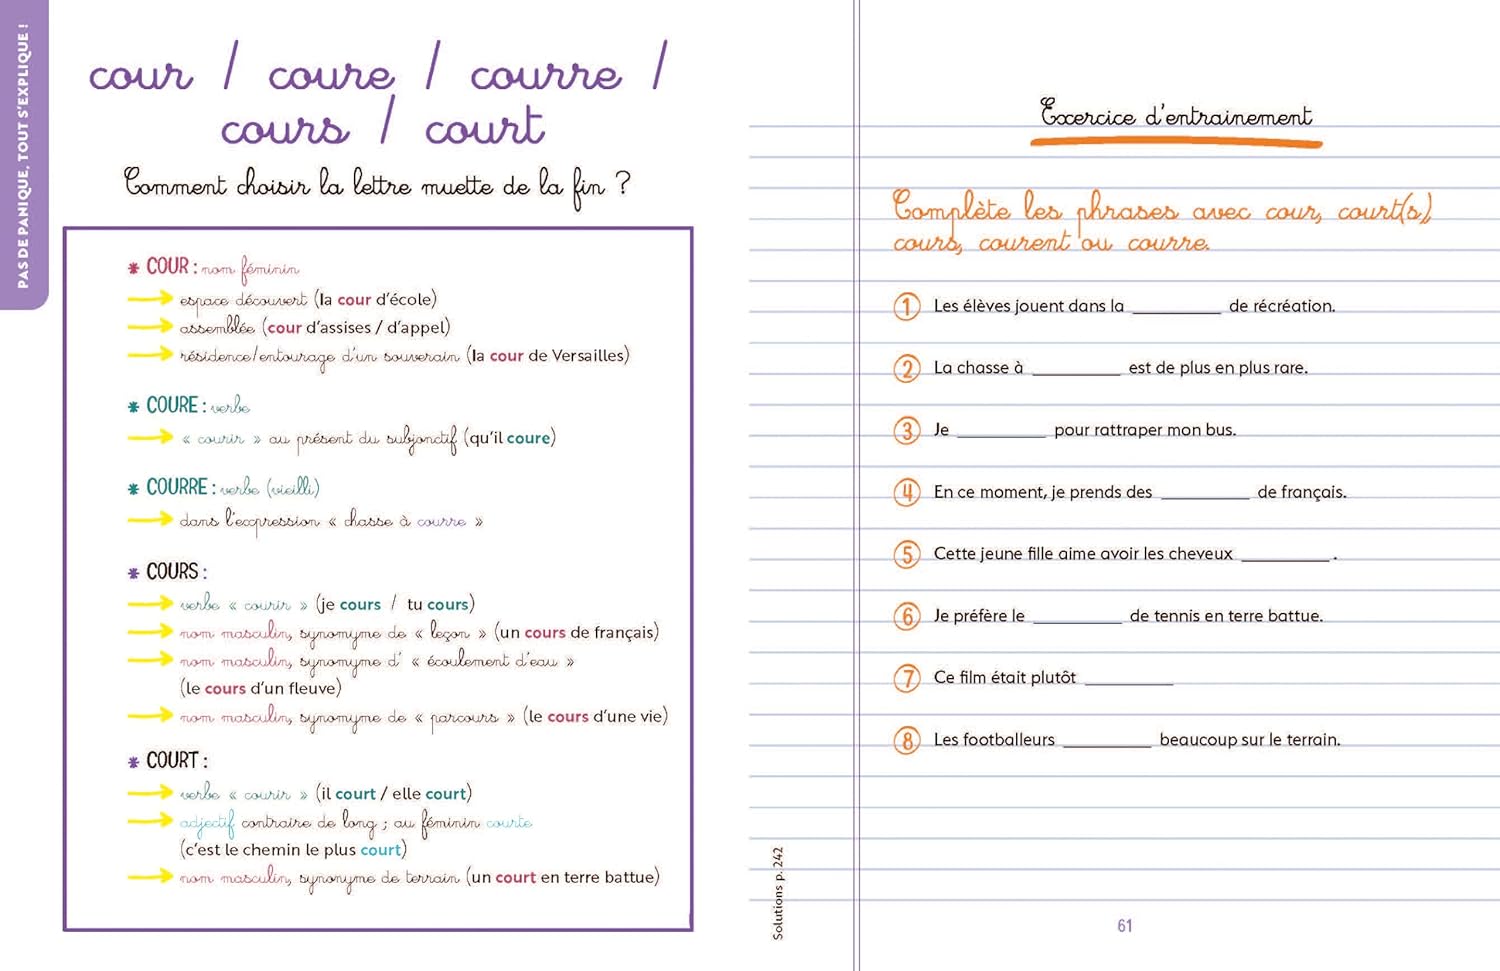 PAS DE PANIQUE, TOUT S'EXPLIQUE !
cour / coure / courre /
cours / court
Comment choisir la lettre muette de la fin ?
* COUR : nom féminin
espace découvert (la cour d'école)
assemblée (cour d'assises / d'appel)
résidence/entourage d'un souverain (la cour de Versailles)
* COURE : verbe
« courir » au présent du subjonctif (qu'il coure)
* COURRE : verbe (vieilli)
dans l'expression « chasse à courre »
* COURS :
verbe « courir » (je cours / tu cours)
nom masculin, synonyme de « leçon » (un cours de français)
nom masculin, synonyme d' « écoulement d'eau »
(le cours d'un fleuve)
nom masculin, synonyme de « parcours » (le cours d'une vie)
* COURT :
verbe « courir » (il court / elle court)
adjectif contraire de long ; au féminin courte
(c'est le chemin le plus court)
nom masculin, synonyme de terrain (un court en terre battue)
Exercice d'entrainement
Complète les phrases avec cour, court(s),
cours, courent ou courre.
1 Les élèves jouent dans la ________ de récréation.
2 La chasse à ________ est de plus en plus rare.
3 Je ________ pour rattraper mon bus.
4 En ce moment, je prends des ________ de français.
5 Cette jeune fille aime avoir les cheveux ________ .
6 Je préfère le ________ de tennis en terre battue.
7 Ce film était plutôt ________
8 Les footballeurs ________ beaucoup sur le terrain.
Solutions p. 242
61